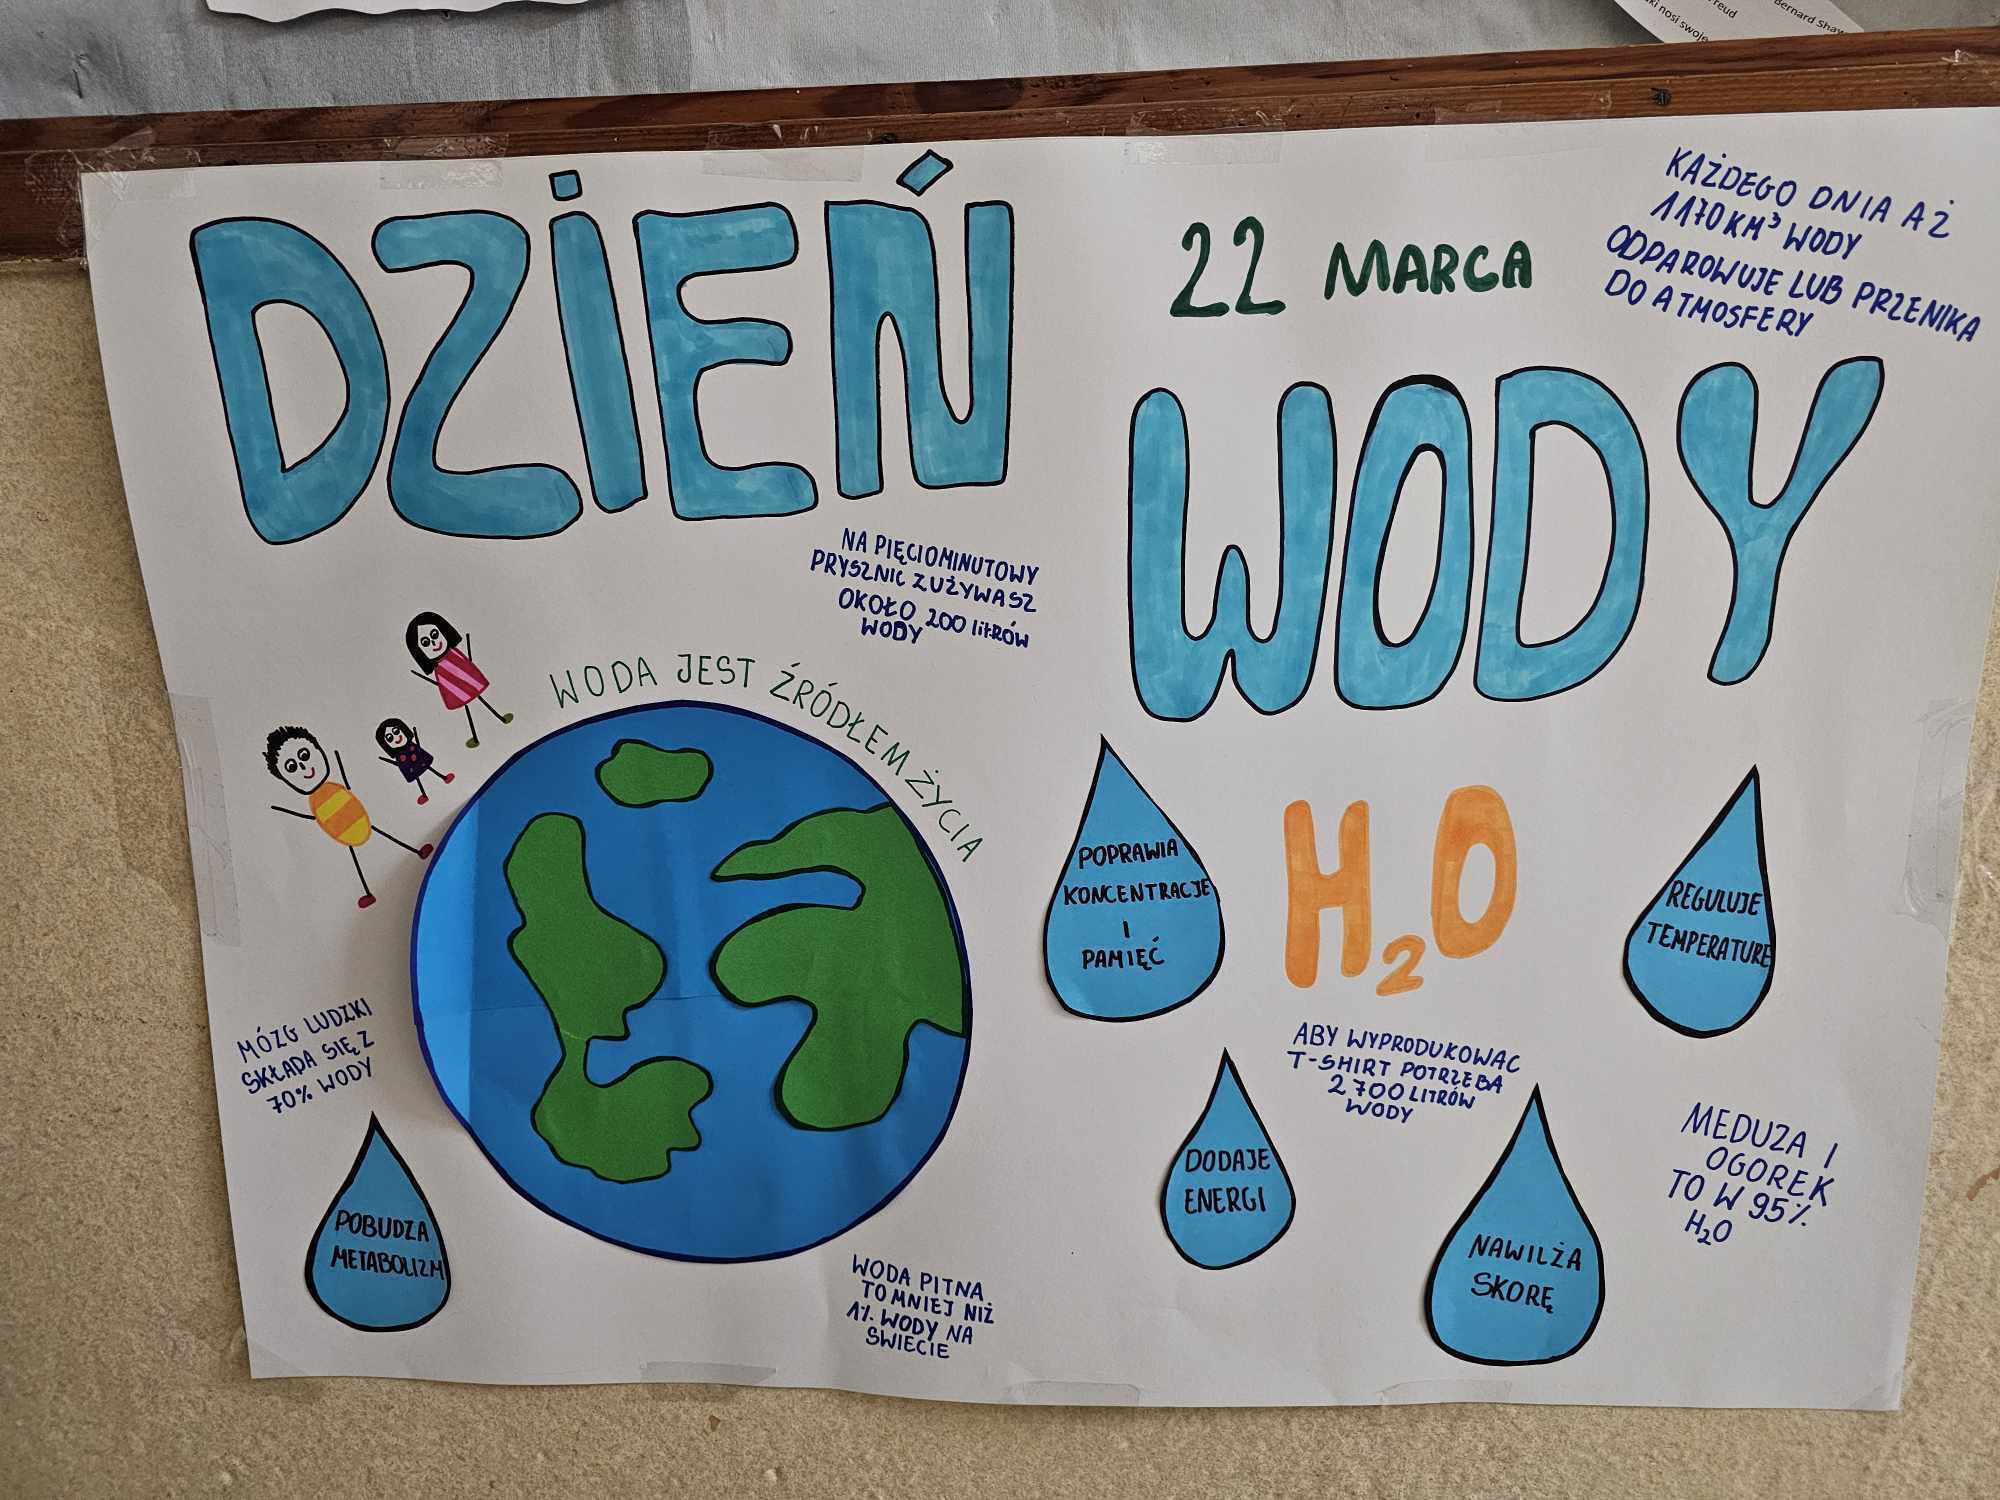 Freud
ki nosi swoje
Bernard Shaw
DZIEŃ
22 MARCA
KAŻDEGO DNIA AŻ
1170 KM³ WODY
ODPAROWUJE LUB PRZENIKA
DO ATMOSFERY
WODY
NA PIĘCIOMINUTOWY
PRYSZNIC ZUŻYWASZ
OKOŁO 200 litRÓW
WODY
WODA JEST ŹRÓDŁEM ŻYCIA
POPRAWIA
KONCENTRACJE
I
PAMIĘĆ
H₂O
REGULUJE
TEMPERATURE
MÓZG LUDZKI
SKŁADA SIĘ Z
70% WODY
ABY WYPRODUKOWAC
T-SHIRT POTRZEBA
2 700 LITRÓW
WODY
POBUDZA
METABOLIZM
DODAJE
ENERGI
NAWILŻA
SKORĘ
MEDUZA I
OGOREK
TO W 95%
H₂O
WODA PITNA
TO MNIEJ NIŻ
1% WODY NA
SWIECIE